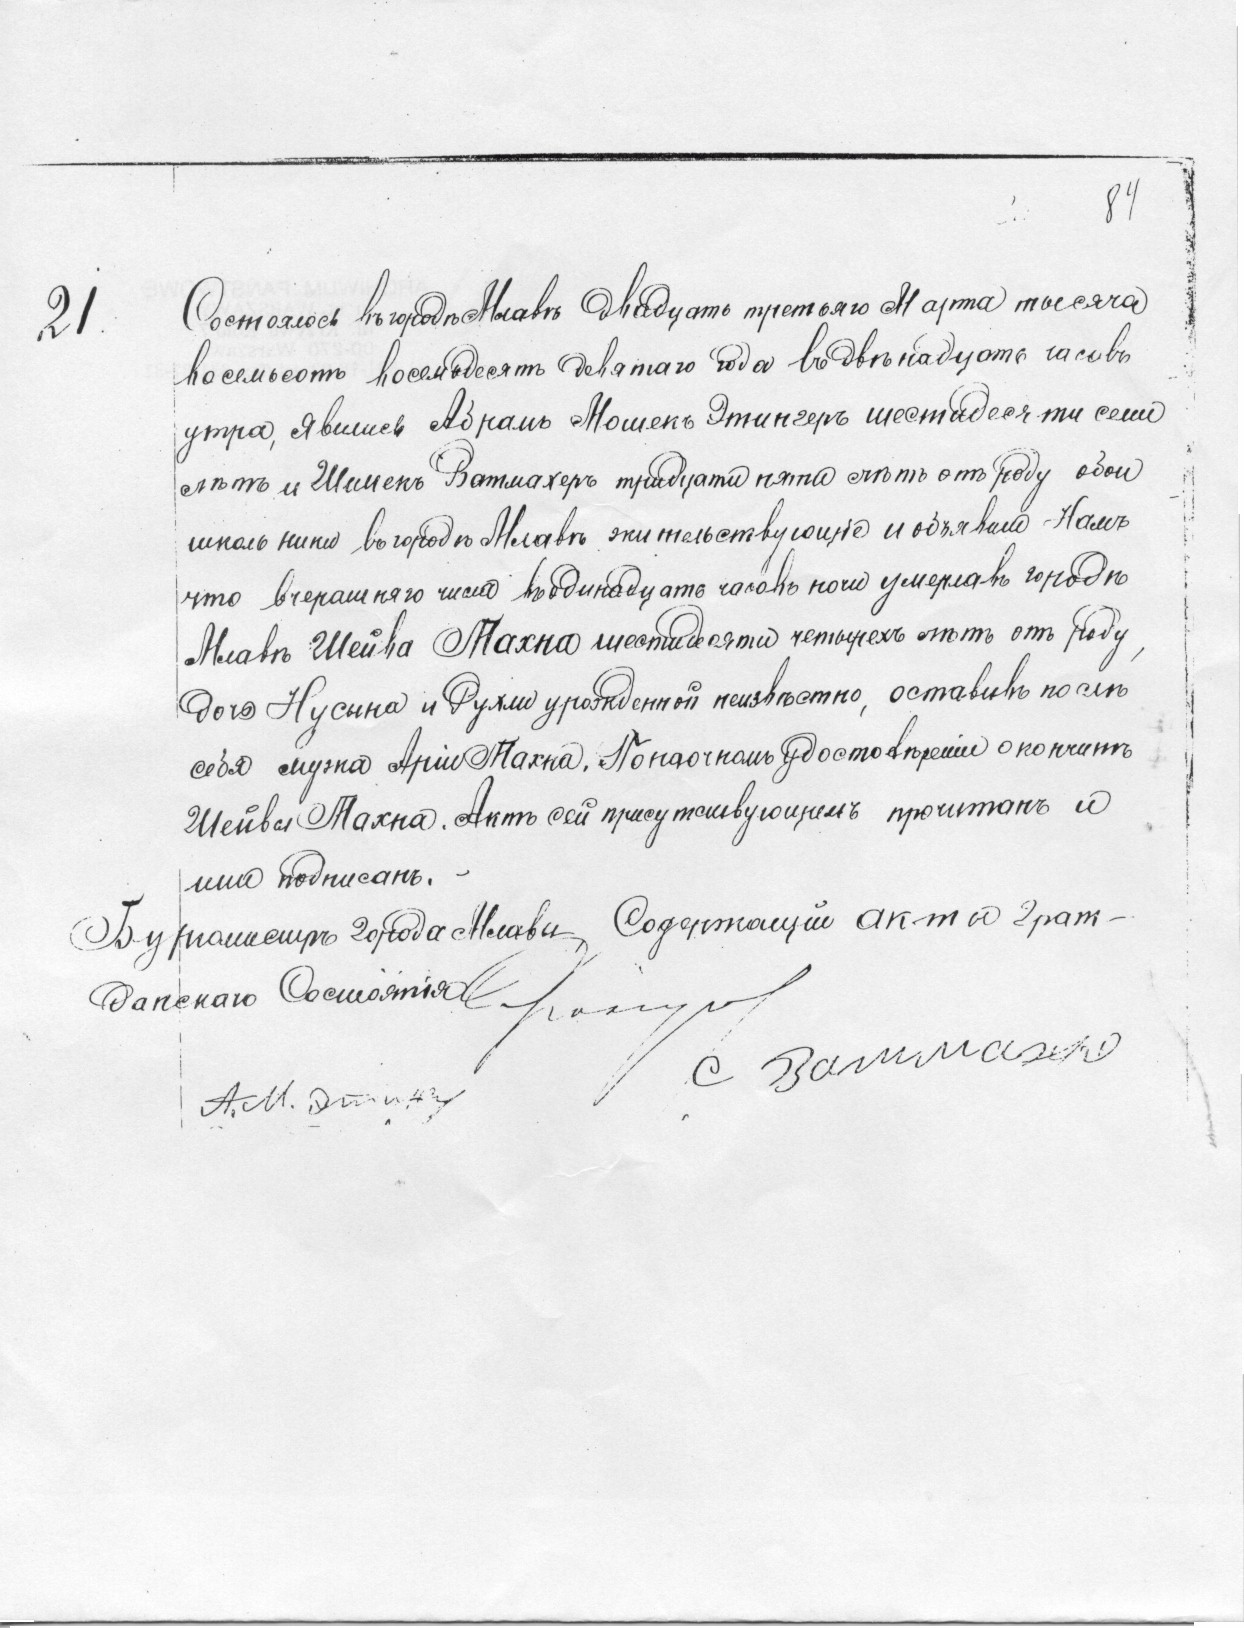 84
21.
Состоялось въ городѣ Млавѣ двадцать третьяго Марта тысяча
восемьсотъ восемьдесятъ девятаго года въ двѣнадцать часовъ
утра, явились Абрамъ Мошекъ Этингеръ шестидесяти семи
лѣтъ и Шимекъ Ватмахеръ тридцати пяти лѣтъ отъ роду обои
школьники въ городѣ Млавѣ жительствующіе и объявили Намъ
что вчерашняго числа въ одинадцать часовъ ночи умерла въ городѣ
Млавѣ Шейва Махна шестидесяти четырехъ лѣтъ отъ роду,
дочь Нусына и Рухли урожденной неизвѣстно, оставивъ послѣ
себя мужа Арiи Махна. По наочномъ удостовѣреніи о кончинѣ
Шейвы Махна. Актъ сей присутствующимъ прочитанъ и
ими подписанъ. -
Бурмистръ города Млавы, Содержащій акты Граж-
данскаго Состоянія
С Ватмахер
А.М. Этинг